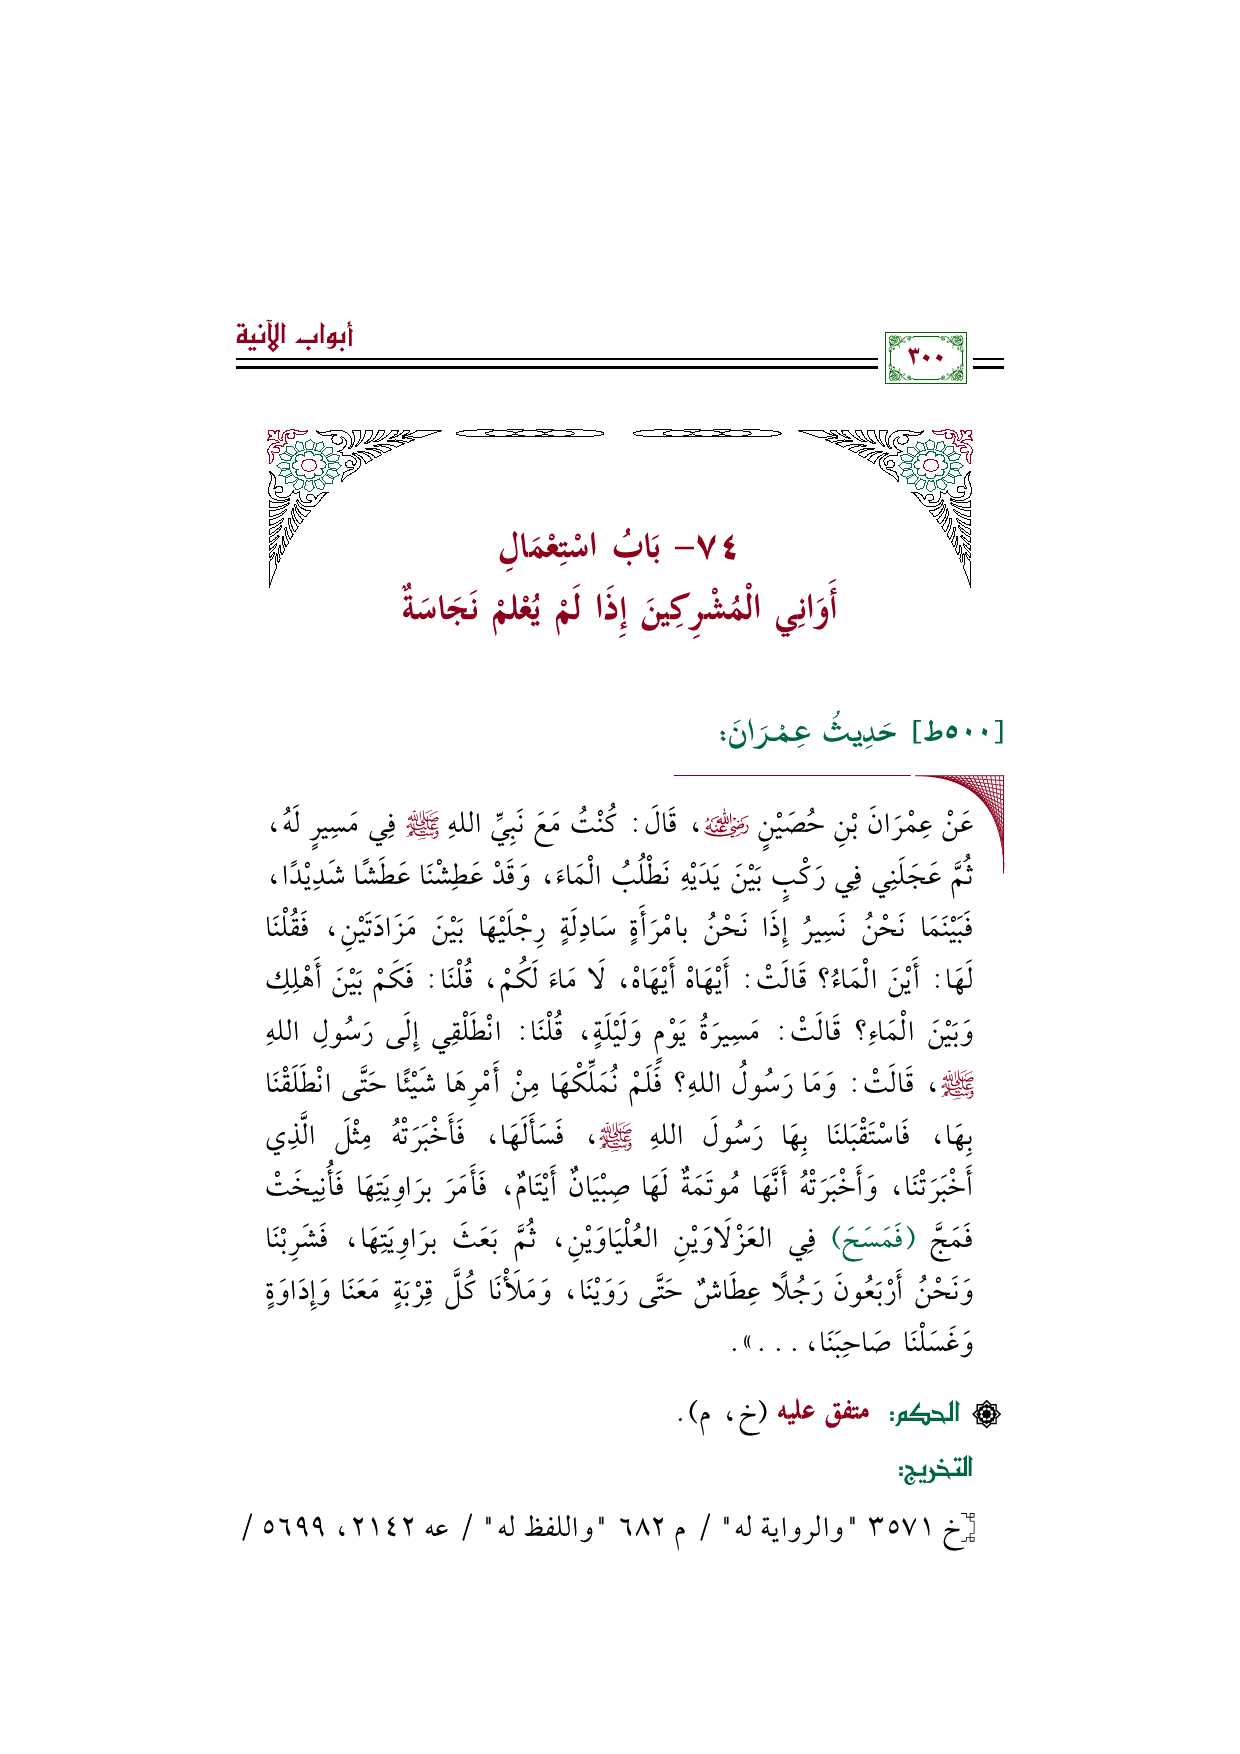 أبواب الآنية
٣٠٠
٧٤- بَابُ اسْتِعْمَالِ
أَوَانِي الْمُشْرِكِينَ إِذَا لَمْ يُعْلمْ نَجَاسَةٌ
[٥٠٠ط] حَدِيثُ عِمْرَانَ:
عَنْ عِمْرَانَ بْنِ حُصَيْنٍ رضي الله عنه، قَالَ: كُنْتُ مَعَ نَبِيِّ اللهِ ﷺ فِي مَسِيرٍ لَهُ،
ثُمَّ عَجَلَنِي فِي رَكْبٍ بَيْنَ يَدَيْهِ نَطْلُبُ الْمَاءَ، وَقَدْ عَطِشْنَا عَطَشًا شَدِيْدًا،
فَبَيْنَمَا نَحْنُ نَسِيرُ إِذَا نَحْنُ بامْرَأَةٍ سَادِلَةٍ رِجْلَيْهَا بَيْنَ مَزَادَتَيْنِ، فَقُلْنَا
لَهَا: أَيْنَ الْمَاءُ؟ قَالَتْ: أَيْهَاهْ أَيْهَاهْ، لَا مَاءَ لَكُمْ، قُلْنَا: فَكَمْ بَيْنَ أَهْلِكِ
وَبَيْنَ الْمَاءِ؟ قَالَتْ: مَسِيرَةُ يَوْمٍ وَلَيْلَةٍ، قُلْنَا: انْطَلْقِي إِلَى رَسُولِ اللهِ
ﷺ، قَالَتْ: وَمَا رَسُولُ اللهِ؟ فَلَمْ نُمَلِّكْهَا مِنْ أَمْرِهَا شَيْئًا حَتَّى انْطَلَقْنَا
بِهَا، فَاسْتَقْبَلنَا بِهَا رَسُولَ اللهِ ﷺ، فَسَأَلَهَا، فَأَخْبَرَتْهُ مِثْلَ الَّذِي
أَخْبَرَتْنَا، وَأَخْبَرَتْهُ أَنَّهَا مُوتَمَةٌ لَهَا صِبْيَانٌ أَيْتَامٌ، فَأَمَرَ برَاوِيَتِهَا فَأُنِيخَتْ
فَمَجَّ (فَمَسَحَ) فِي العَزْلَاوَيْنِ العُلْيَاوَيْنِ، ثُمَّ بَعَثَ برَاوِيَتِهَا، فَشَرِبْنَا
وَنَحْنُ أَرْبَعُونَ رَجُلًا عِطَاشٌ حَتَّى رَوَيْنَا، وَمَلَأْنَا كُلَّ قِرْبَةٍ مَعَنَا وَإِدَاوَةٍ
وَغَسَلْنَا صَاحِبَنَا، . . .».
الحكم: متفق عليه (خ، م).
التخريج:
[خ ٣٥٧١ "والرواية له" / م ٦٨٢ "واللفظ له" / عه ٢١٤٢، ٥٦٩٩ /